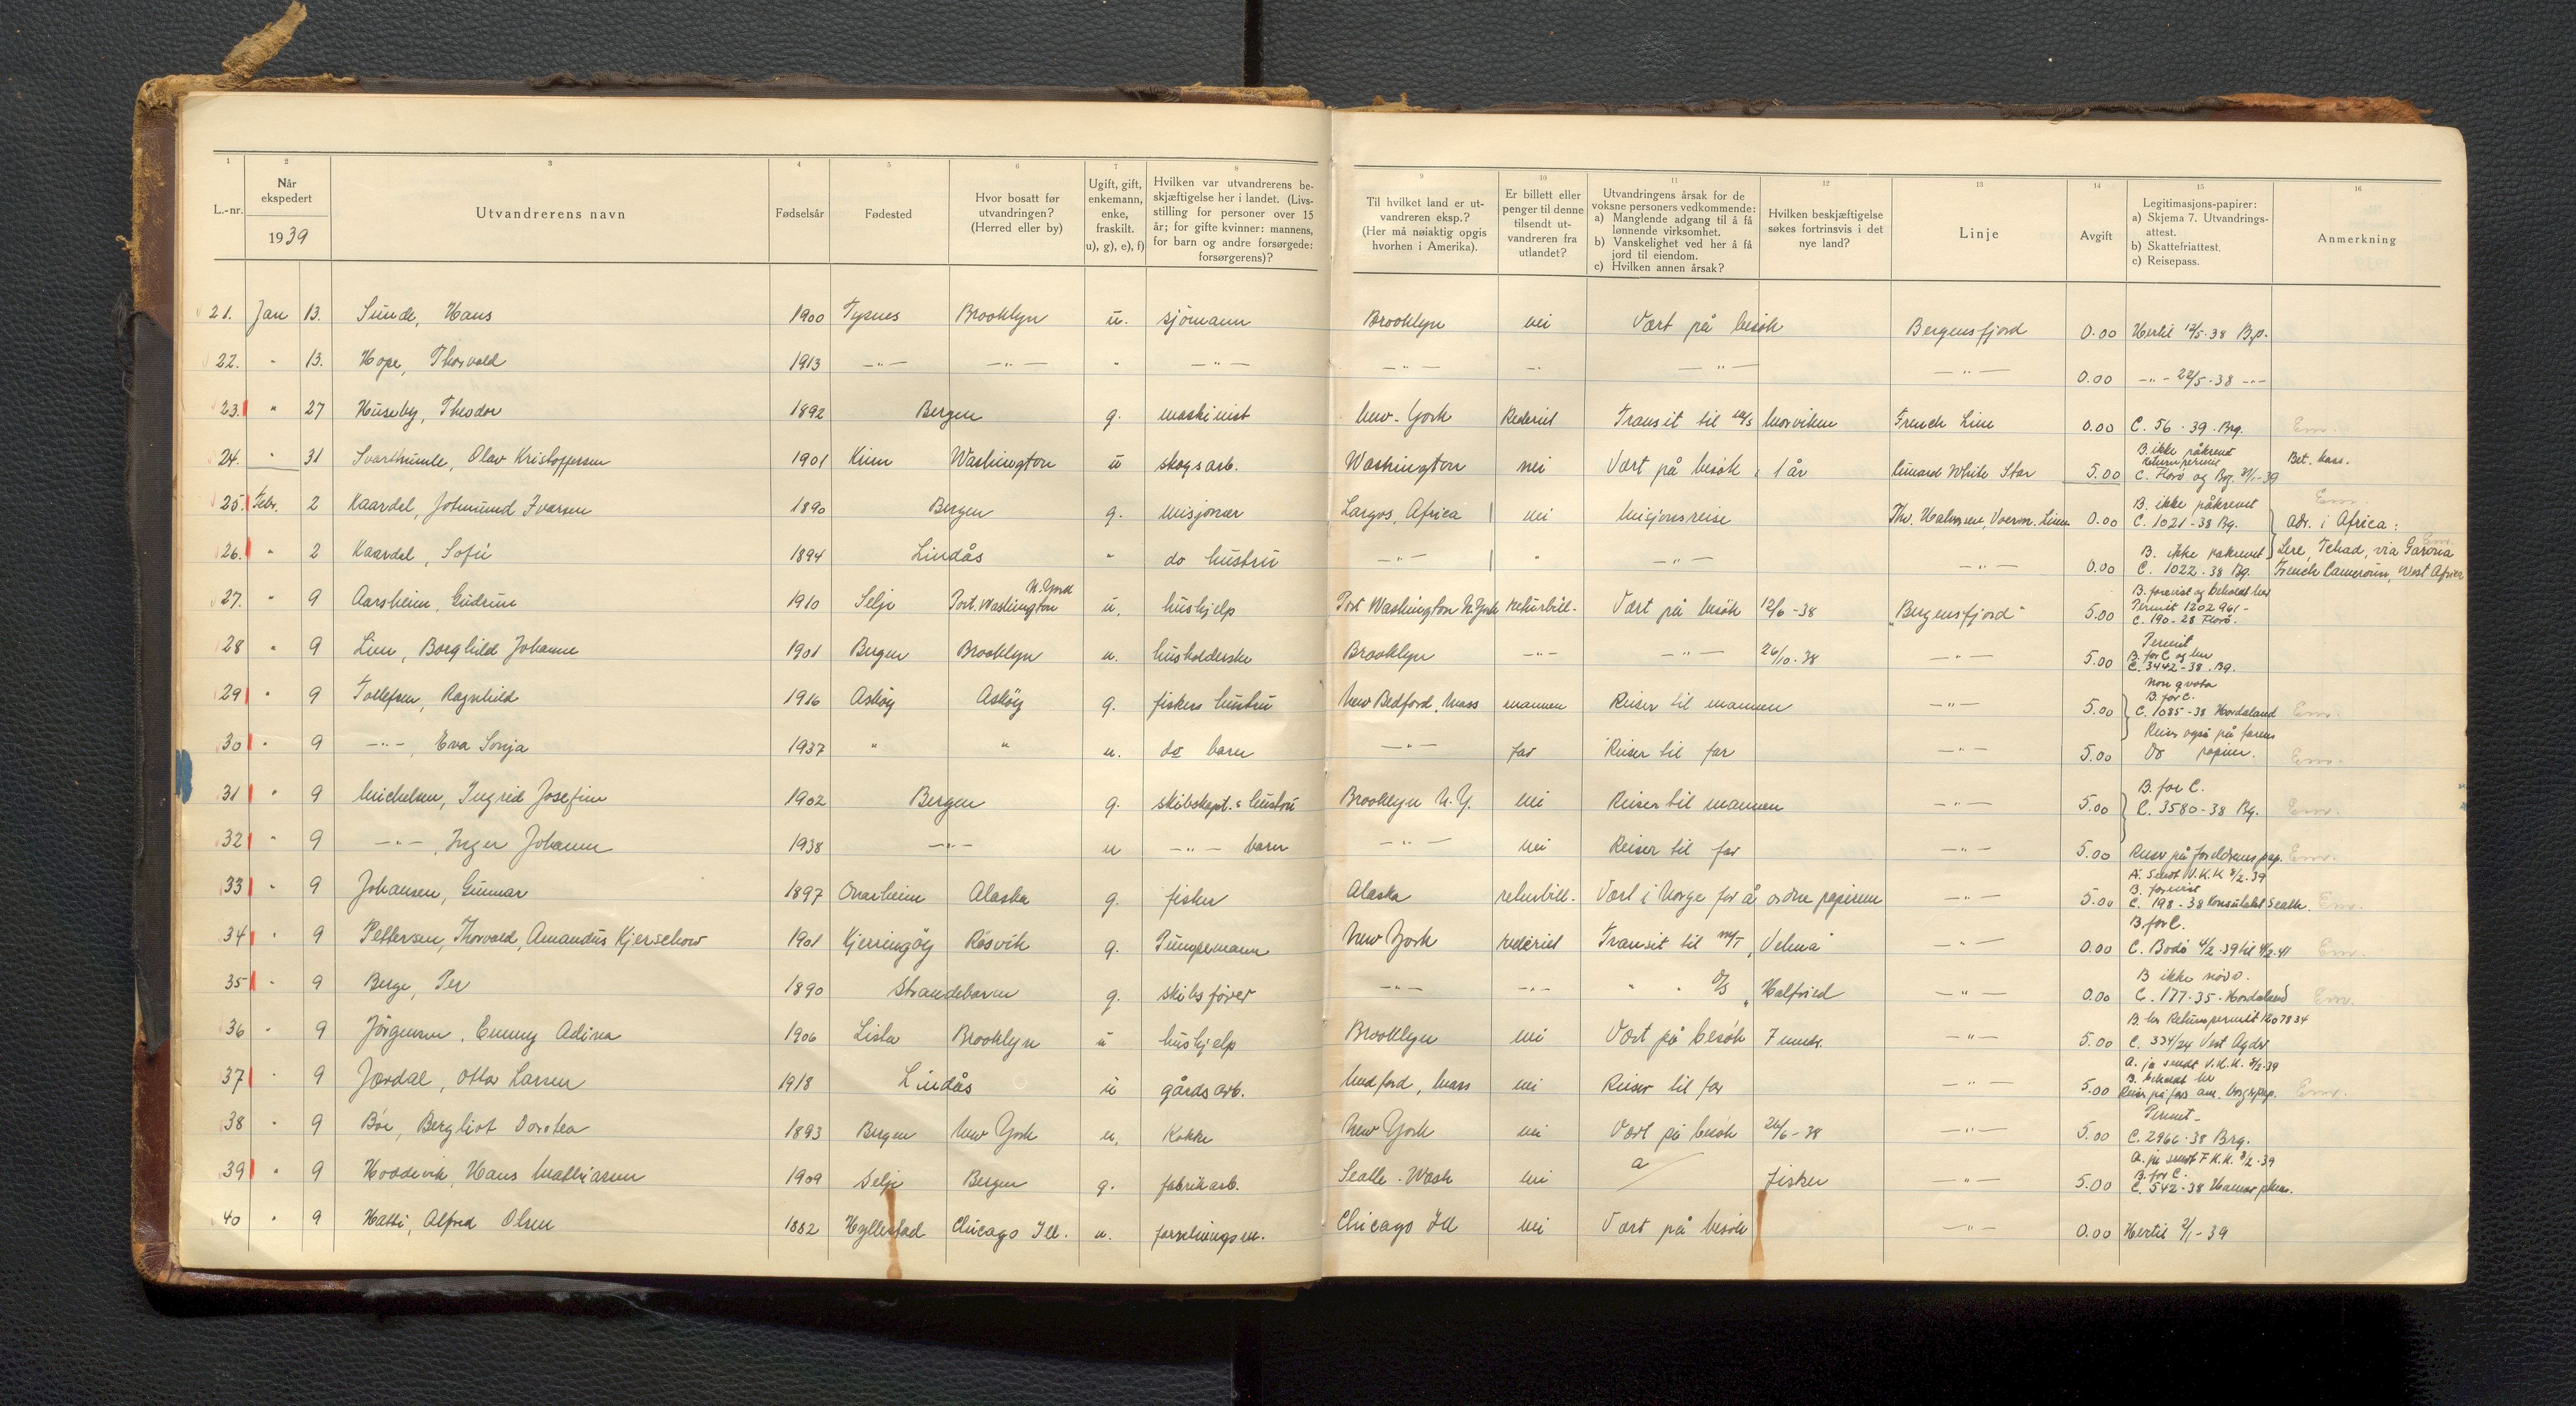 1 2 3 4 5 6 7 8 9 10 11 12 13 14 15 16
L.-nr. Når ekspedert 1939 Utvandrerens navn Fødselsår Fødested Hvor bosatt før utvandringen? (Herred eller by) Ugift, gift, enkemann, enke, fraskilt. u), g), e), f) Hvilken var utvandrerens beskjæftigelse her i landet. (Livsstilling for personer over 15 år; for gifte kvinner: mannens, for barn og andre forsørgede: forsørgerens)? Til hvilket land er utvandreren eksp.? (Her må nøiaktig opgis hvorhen i Amerika). Er billett eller penger til denne tilsendt utvandreren fra utlandet? Utvandringens årsak for de voksne personers vedkommende: a) Manglende adgang til å få lønnende virksomhet. b) Vanskelighet ved her å få jord til eiendom. c) Hvilken annen årsak? Hvilken beskjæftigelse søkes fortrinsvis i det nye land? Linje Avgift Legitimasjons-papirer: a) Skjema 7. Utvandrings-attest. b) Skattefriattest. c) Reisepass. Anmerkning
21. Jan 13. Sunde, Hans 1900 Tysnes Brooklyn u. sjømann Brooklyn nei Vært på besøk Bergensfjord 0.00 Hertil 12/5-38 B.p.
22. " 13. Hope, Thorvald 1913 -"- -"- " -"- -"- -"- -"- -"- 0.00 -"- 22/5-38 -"-
23. " 27 Huseby, Theodor 1892 Bergen g. maskinist New-York Rederiet Transit til M/S Morviken French Line 0.00 C. 56-39. Brg. Em.
24. " 31 Svarthumle, Olav Kristoffersen 1901 Kinn Washington u skogsarb. Washington nei Vært på besøk 1 år Cunard White Star 5.00 B. ikke påkrevet Returnpermit C. Florø og Brg. 31/1-39 Bet. kass.
25. Febr. 2 Kaardal, Johnmund Ivarsen 1890 Bergen g. misjonær Largos, Africa nei Misjonsreise Th. Halvorsen, Voerm. Linie 0.00 B. ikke påkrevet C. 1021-38 Bg. Em. adr. i Africa:
26. " 2 Kaardal, Sofie 1894 Lindås " do hustru -"- " -"- -"- 0.00 B. ikke påkrevet C. 1022-38 Bg. Em. Lere, Tchad, via Garoua French Cameroun, West Africa
27. " 9 Aarsheim, Gudrun 1910 Selje Port. Washington N. York u. hushjelp Port Washington N. York returbill. Vært på besøk 12/6-38 "Bergensfjord" 5.00 B. forevist og beholdt her Permit 1202961- C. 190-28 Florø.
28 " 9 Lien, Borghild Johanne 1901 Bergen Brooklyn u. husholderske Brooklyn -"- -"- 26/10-38 -"- 5.00 Permit B. for C og her C. 3442-38. Bg.
29 " 9 Tollefsen, Ragnhild 1916 Askøy Askøy g. fiskers hustru New Bedford, Mass mannen Reiser til mannen -"- 5.00 Non qvota B. for C. C. 1085-38 Hordaland Em.
30 " 9 -"-, Eva Sonja 1937 " " u. do barn -"- far Reiser til far -"- 5.00 Reiser også på farens papirer. Em.
31 " 9 Michelsen, Ingrid Josefine 1902 Bergen g. skibskapt.s hustru Brooklyn N.Y. nei Reiser til mannen -"- 5.00 B. for C. C. 3580-38 Bg. Em.
32 " 9 -"-, Inger Johanne 1938 -"- u -"- barn -"- nei Reiser til far -"- 5.00 Reiser på foreldrenes pap. Em.
33 " 9 Johansen, Gunnar 1897 Onarheim Alaska g. fisker Alaska returbill. Vært i Norge for å ordne papirene -"- 5.00 A. sendt V.K.K. 8/2-39 B. forevist C. 198-38 Konsulatet Seattle. Em.
34 " 9 Pettersen, Thorvald, Amandus Kjerschow 1901 Kjerringøy Røsvik g. Pumpemann New York rederiet Transit til M/T "Velma" -"- 0.00 B for C. C. Bodø 4/2-39 til 4/2-41 Em.
35 " 9 Berge, Per 1890 Strandebarm g. skibsfører -"- -"- " " D/S "Halfried -"- 0.00 B ikke nødv. C. 177-35-Hordaland Em.
36 " 9 Jörgensen, Emmy Adina 1906 Lista Brooklyn u hushjelp Brooklyn nei Vært på besøk 7 mndr. -"- 5.00 B. her Returnpermit 1207834 C. 334/24 Vest Agder
37 " 9 Jordal, Otto Larsen 1918 Lindås u gårdsarb. Medford, Mass nei Reiser til far -"- 5.00 A. ja sendt V.K.K. 8/2-39 B. beholdt her Reiser på fars am. borgerpap. Em.
38 " 9 Böe, Bergliot Dorthea 1893 Bergen New York u. Kokke New York nei Vært på besøk 26/6-38 -"- 5.00 Permit- C. 2966-38 Brg.
39 " 9 Hoddevik, Hans Mathiasen 1909 Selje Bergen g. fabrikarb. Seatle. Wash nei a fisker -"- 5.00 A. ja sendt F.K.K. 8/2-39 B. for C. C. 542-38 Hamar pkm.
40 " 9 Hatti, Alfred Olsen 1882 Hyllestad Chicago Ill. u. Chicago Ill nei Vært på besøk -"- 0.00 Hertil 2/1-39